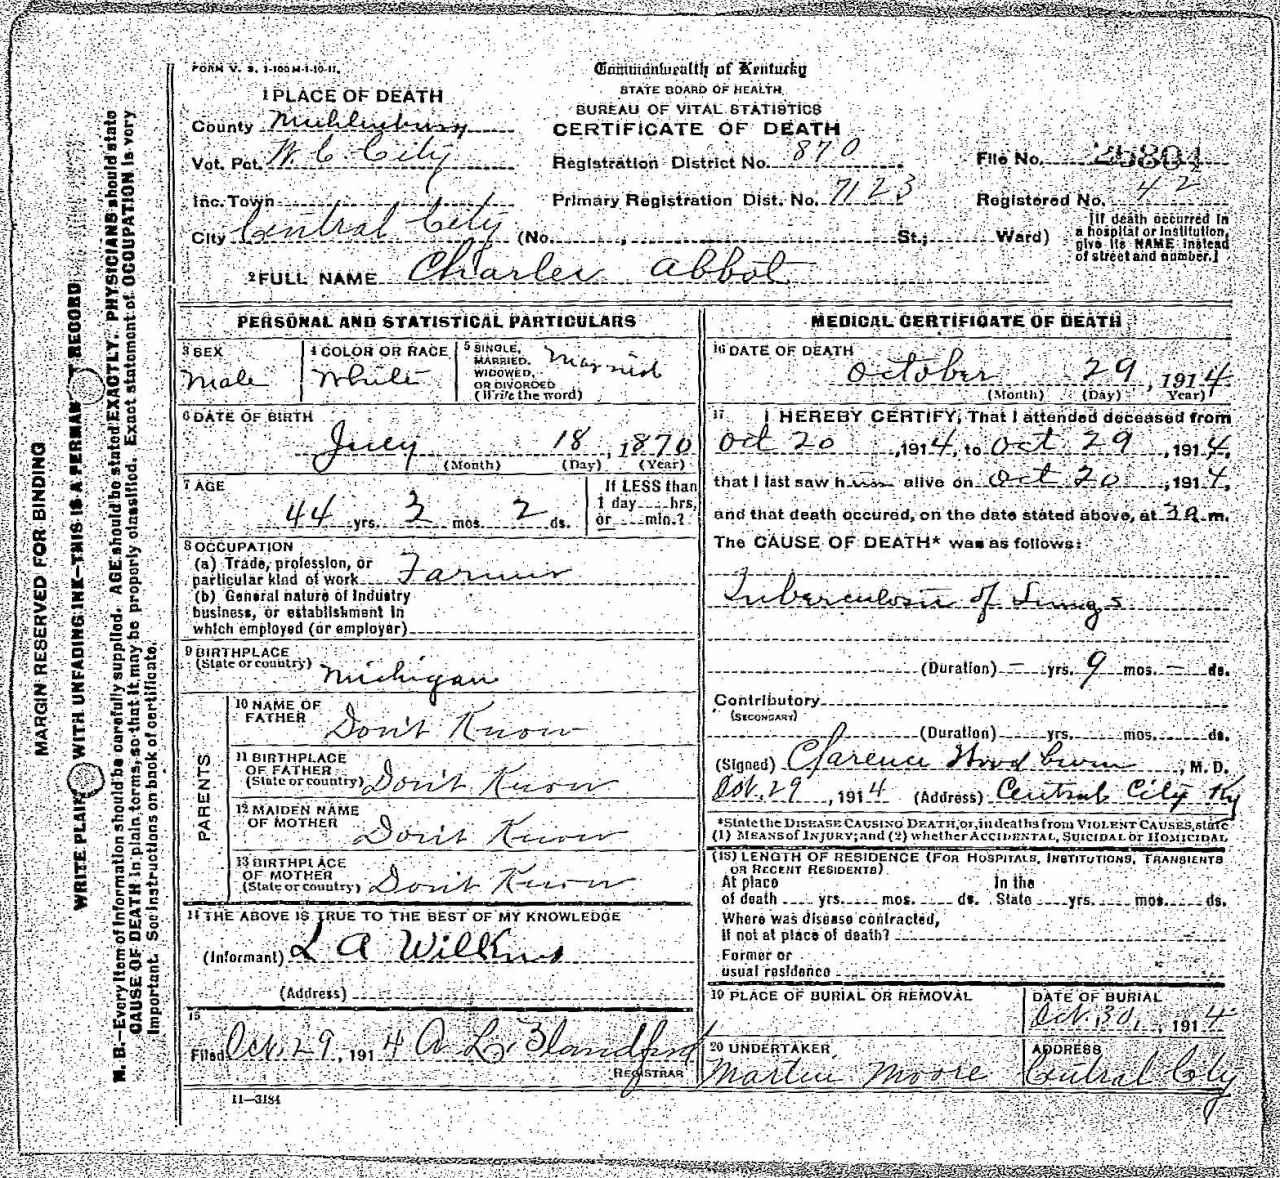 FORM V. S. 1-100M-1-10-11.
Commonwealth of Kentucky
STATE BOARD OF HEALTH
BUREAU OF VITAL STATISTICS
CERTIFICATE OF DEATH
1 PLACE OF DEATH
County Muhlenburg
Vot. Pct. W. C. City
Inc. Town
City Central City (No. , St.; Ward)
Registration District No. 870
Primary Registration Dist. No. 7123
File No. 25804
Registered No. 42
[If death occurred in
a hospital or institution,
give its NAME instead
of street and number.]
2 FULL NAME Charles Abbot
PERSONAL AND STATISTICAL PARTICULARS
3 SEX
Male
4 COLOR OR RACE
White
5 SINGLE,
MARRIED,
WIDOWED,
OR DIVORCED
(Write the word)
Married
6 DATE OF BIRTH
July 18, 1870
(Month) (Day) (Year)
7 AGE
44 yrs. 3 mos. 2 ds.
If LESS than
1 day hrs.
or min.?
8 OCCUPATION
(a) Trade, profession, or
particular kind of work Farmer
(b) General nature of Industry
business, or establishment in
which employed (or employer)
9 BIRTHPLACE
(State or country) Michigan
PARENTS
10 NAME OF
FATHER Don't Know
11 BIRTHPLACE
OF FATHER
(State or country) Don't Know
12 MAIDEN NAME
OF MOTHER Don't Know
13 BIRTHPLACE
OF MOTHER
(State or country) Don't Know
14 THE ABOVE IS TRUE TO THE BEST OF MY KNOWLEDGE
(Informant) L A Wilkins
(Address)
15
Filed Oct. 29, 1914 A. L. Blandford
REGISTRAR
11-3184
MEDICAL CERTIFICATE OF DEATH
16 DATE OF DEATH
October 29, 1914
(Month) (Day) (Year)
17 I HEREBY CERTIFY, That I attended deceased from
Oct 20, 1914, to Oct 29, 1914,
that I last saw him alive on Oct 20, 1914,
and that death occured, on the date stated above, at 3 A.m.
The CAUSE OF DEATH* was as follows:
Tuberculosis of Lungs
(Duration) — yrs. 9 mos. — ds.
Contributory
(SECONDARY)
(Duration) yrs. mos. ds.
(Signed) Clarence Woodburn, M. D.
Oct. 29, 1914 (Address) Central City Ky
*State the DISEASE CAUSING DEATH, or, in deaths from VIOLENT CAUSES, state
(1) MEANS of INJURY; and (2) whether ACCIDENTAL, SUICIDAL or HOMICIDAL
(18) LENGTH OF RESIDENCE (FOR HOSPITALS, INSTITUTIONS, TRANSIENTS
OR RECENT RESIDENTS)
At place In the
of death yrs. mos. ds. State yrs. mos. ds.
Where was disease contracted,
If not at place of death?
Former or
usual residence
19 PLACE OF BURIAL OR REMOVAL
DATE OF BURIAL
Oct. 30, 1914
20 UNDERTAKER
Martin Moore
ADDRESS
Central City
MARGIN RESERVED FOR BINDING
WRITE PLAIN WITH UNFADING INK—THIS IS A PERMAN T RECORD
N. B.—Every item of information should be carefully supplied. AGE should be stated EXACTLY. PHYSICIANS should state
CAUSE OF DEATH in plain terms, so that it may be properly classified. Exact statement of OCCUPATION is very
important. See instructions on back of certificate.